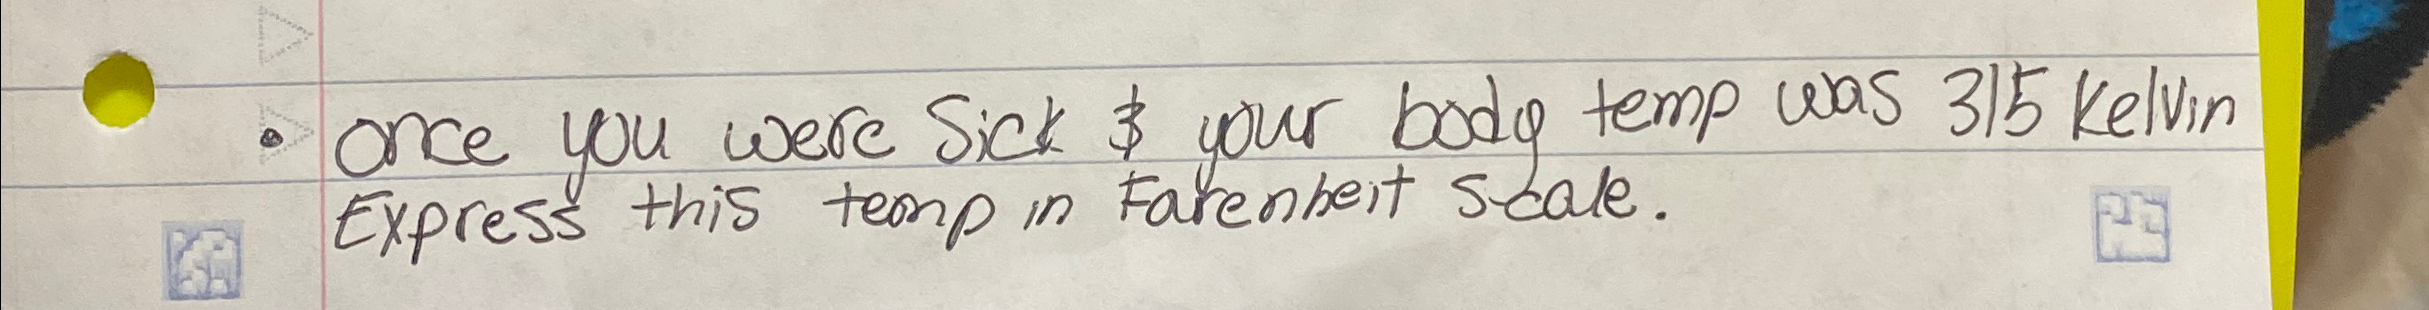 • once you were Sick & your body temp was 315 Kelvin
Express this temp in Farenheit scale.